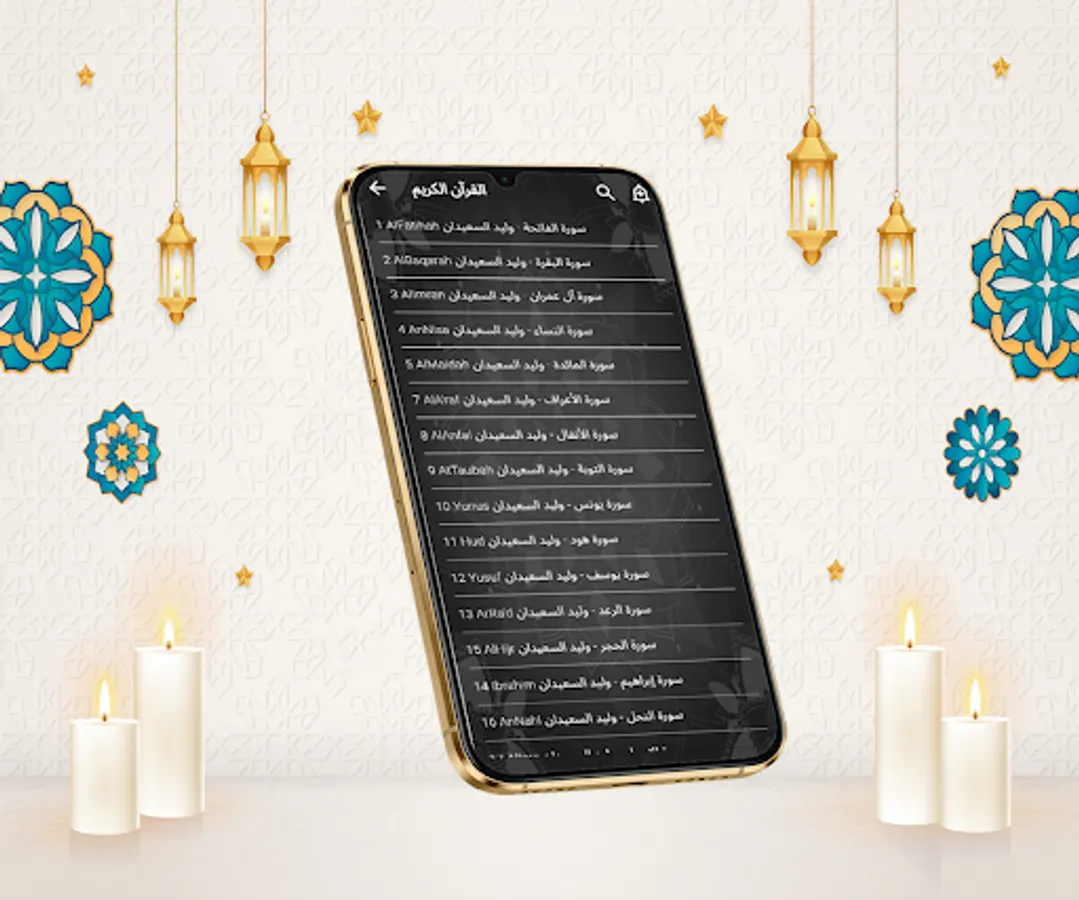 القرآن الكريم
1 AlFatihah سورة الفاتحة - وليد السعيدان
2 AlBaqarah سورة البقرة - وليد السعيدان
3 Alimran سورة آل عمران - وليد السعيدان
4 AnNisa سورة النساء - وليد السعيدان
5 AlMaidah سورة المائدة - وليد السعيدان
7 AlAraf سورة الأعراف - وليد السعيدان
8 AlAnfal سورة الأنفال - وليد السعيدان
9 AtTaubah سورة التوبة - وليد السعيدان
10 Yunus سورة يونس - وليد السعيدان
11 Hud سورة هود - وليد السعيدان
12 Yusuf سورة يوسف - وليد السعيدان
13 ArRa'd سورة الرعد - وليد السعيدان
15 AlHijr سورة الحجر - وليد السعيدان
14 Ibrahim سورة إبراهيم - وليد السعيدان
16 AnNahl سورة النحل - وليد السعيدان